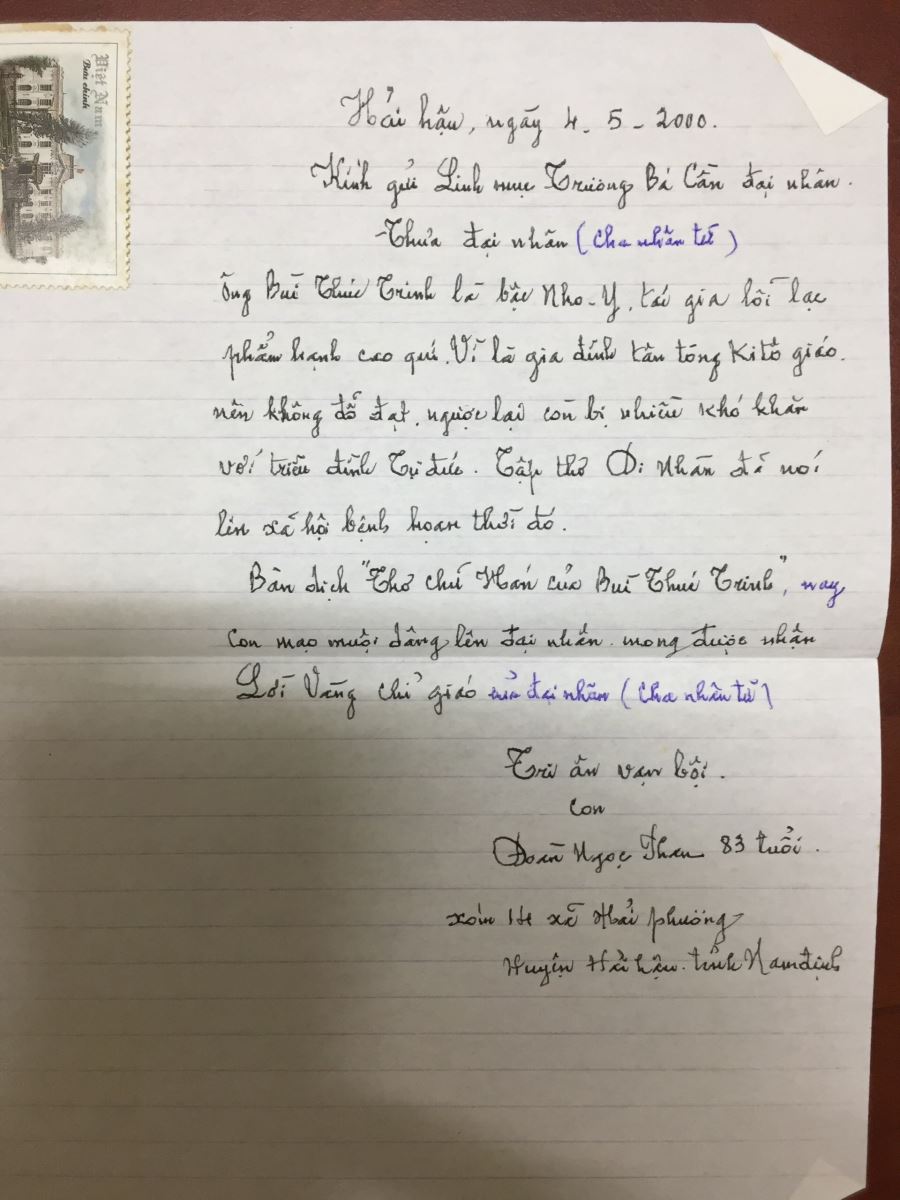 Việt Nam
Bưu chính
Hải hậu, ngày 4-5-2000.
Kính gửi Linh mục Trương Bá Cần đại nhân.
Thưa đại nhân (cha nhân từ)
Ông Bùi Thúc Trinh là bậc Nho-Y, tái gia lỗi lạc
phẩm hạnh cao quí. Vì là gia đình tân tòng Kitô giáo.
nên không đỗ đạt, ngược lại còn bị nhiều khó khăn
với triều đình Tự đức. Tập thơ Di Nhân đã nói
lên xã hội bệnh hoạn thời đó.
Bản dịch "Thơ chữ Hán của Bùi Thúc Trinh", nay
con mạo muội dâng lên đại nhân. mong được nhận
Lời Vàng chỉ giáo của đại nhân (cha nhân từ)
Tri ân vạn bội.
con
Đoàn Ngọc 83 tuổi.
xóm 14 xã Hải phương
Huyện Hải hậu. tỉnh Nam định